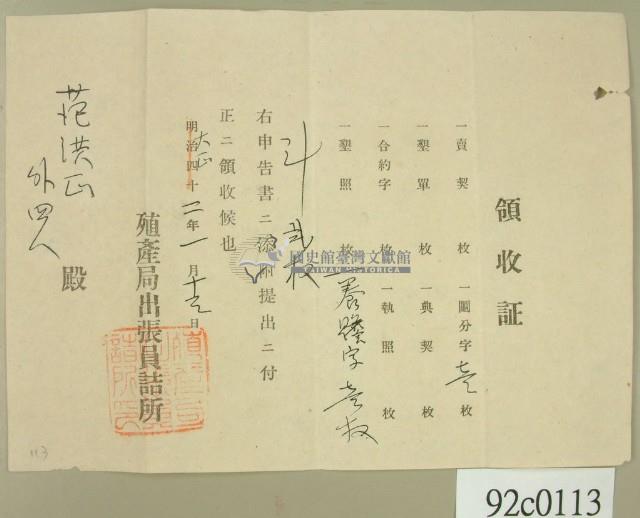 領收証
一賣契 枚 一鬮分字 壹枚
一墾單 枚 一典契 枚
一合約字 枚 一執照 枚
一墾照 枚 一養贍字 壹枚
計 弐枚
右申告書ニ添附提出ニ付
正ニ領收候也
大正
明治四十二年一月十三日
殖產局出張員詰所
范洪正
外四人
殿
國史館臺灣文獻館
TAIWAN HISTORICA
113
92c0113